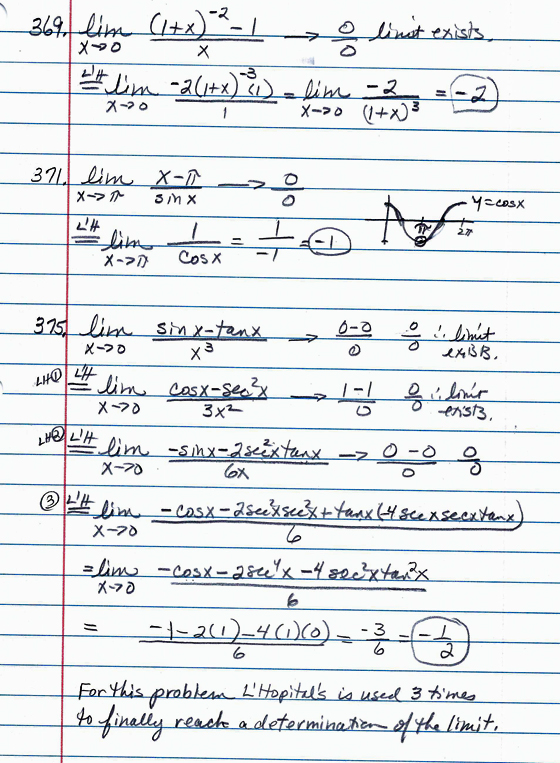 369. lim x→0 ((1+x)^-2 - 1)/x → 0/0 limit exists.
L'H= lim x→0 (-2(1+x)^-3 (1))/1 = lim x→0 -2/(1+x)^3 = -2
371. lim x→π (x-π)/sinx → 0/0
y=cosx
π 2π
L'H= lim x→π 1/cosx = 1/-1 = -1
375. lim x→0 (sinx-tanx)/x^3 → (0-0)/0 0/0 ∴ limit exists.
LH① L'H= lim x→0 (cosx-sec^2x)/3x^2 → (1-1)/0 0/0 ∴ limit exists.
LH② L'H= lim x→0 (-sinx-2sec^2xtanx)/6x → (0-0)/0 0/0
③ L'H= lim x→0 (-cosx-2sec^2xsec^2x+tanx(4secxsecxtanx))/6
= lim x→0 (-cosx-2sec^4x-4sec^2xtan^2x)/6
= (-1-2(1)-4(1)(0))/6 = -3/6 = -1/2
For this problem L'Hopital's is used 3 times
to finally reach a determination of the limit.